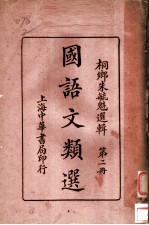 桐鄉朱毓魁選輯 第二冊
國語文類選
上海中華書局印行